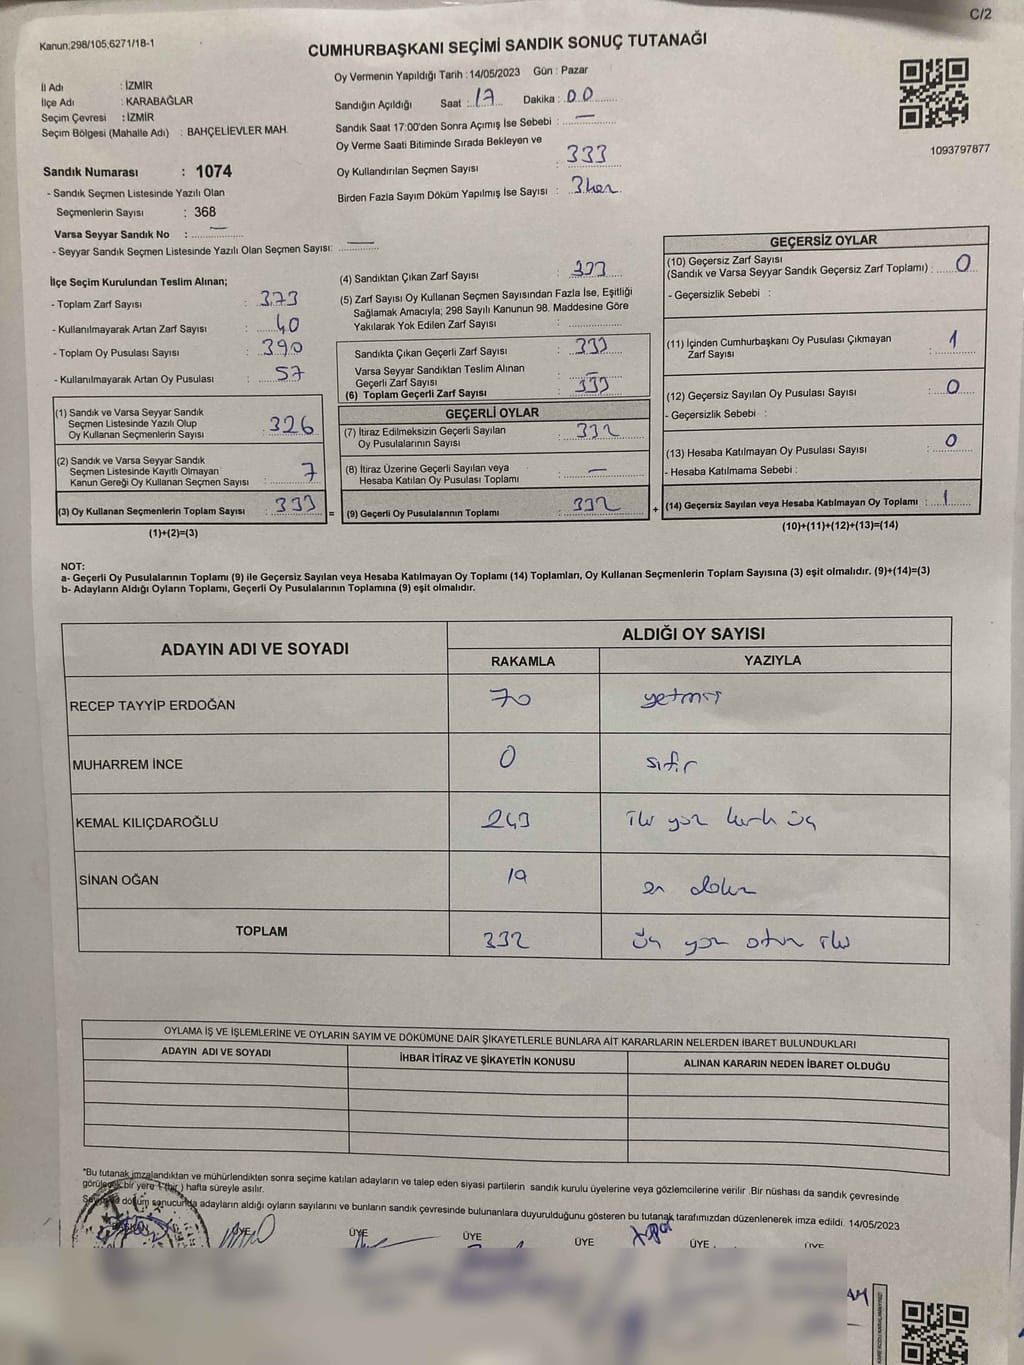 C/2
Kanun;298/105;6271/18-1
CUMHURBAŞKANI SEÇİMİ SANDIK SONUÇ TUTANAĞI
İl Adı : İZMİR
İlçe Adı : KARABAĞLAR
Seçim Çevresi : İZMİR
Seçim Bölgesi (Mahalle Adı) : BAHÇELİEVLER MAH.
Oy Vermenin Yapıldığı Tarih : 14/05/2023 Gün : Pazar
Sandığın Açıldığı Saat : 17 Dakika : 00
Sandık Saat 17:00'den Sonra Açımış İse Sebebi : —
Oy Verme Saati Bitiminde Sırada Bekleyen ve
Oy Kullandırılan Seçmen Sayısı : 333
Birden Fazla Sayım Döküm Yapılmış İse Sayısı : 3
1093797877
Sandık Numarası : 1074
- Sandık Seçmen Listesinde Yazılı Olan
Seçmenlerin Sayısı : 368
Varsa Seyyar Sandık No : —
- Seyyar Sandık Seçmen Listesinde Yazılı Olan Seçmen Sayısı: —
İlçe Seçim Kurulundan Teslim Alınan;
- Toplam Zarf Sayısı : 373
- Kullanılmayarak Artan Zarf Sayısı : 40
- Toplam Oy Pusulası Sayısı : 390
- Kullanılmayarak Artan Oy Pusulası : 57
(1) Sandık ve Varsa Seyyar Sandık
Seçmen Listesinde Yazılı Olup
Oy Kullanan Seçmenlerin Sayısı : 326
(2) Sandık ve Varsa Seyyar Sandık
Seçmen Listesinde Kayıtlı Olmayan
Kanun Gereği Oy Kullanan Seçmen Sayısı : 7
(3) Oy Kullanan Seçmenlerin Toplam Sayısı : 333 =
(1)+(2)=(3)
(4) Sandıktan Çıkan Zarf Sayısı : 333
(5) Zarf Sayısı Oy Kullanan Seçmen Sayısından Fazla İse, Eşitliği
Sağlamak Amacıyla; 298 Sayılı Kanunun 98. Maddesine Göre
Yakılarak Yok Edilen Zarf Sayısı :
Sandıkta Çıkan Geçerli Zarf Sayısı : 333
Varsa Seyyar Sandıktan Teslim Alınan
Geçerli Zarf Sayısı : —
(6) Toplam Geçerli Zarf Sayısı : 333
GEÇERLİ OYLAR
(7) İtiraz Edilmeksizin Geçerli Sayılan
Oy Pusulalarının Sayısı : 332
(8) İtiraz Üzerine Geçerli Sayılan veya
Hesaba Katılan Oy Pusulası Toplamı : —
(9) Geçerli Oy Pusulalarının Toplamı : 332 +
GEÇERSİZ OYLAR
(10) Geçersiz Zarf Sayısı
(Sandık ve Varsa Seyyar Sandık Geçersiz Zarf Toplamı) : 0
- Geçersizlik Sebebi :
(11) İçinden Cumhurbaşkanı Oy Pusulası Çıkmayan
Zarf Sayısı : 1
(12) Geçersiz Sayılan Oy Pusulası Sayısı : 0
- Geçersizlik Sebebi :
(13) Hesaba Katılmayan Oy Pusulası Sayısı : 0
- Hesaba Katılmama Sebebi :
(14) Geçersiz Sayılan veya Hesaba Katılmayan Oy Toplamı : 1
(10)+(11)+(12)+(13)=(14)
NOT:
a- Geçerli Oy Pusulalarının Toplamı (9) ile Geçersiz Sayılan veya Hesaba Katılmayan Oy Toplamı (14) Toplamları, Oy Kullanan Seçmenlerin Toplam Sayısına (3) eşit olmalıdır. (9)+(14)=(3)
b- Adayların Aldığı Oyların Toplamı, Geçerli Oy Pusulalarının Toplamına (9) eşit olmalıdır.
ADAYIN ADI VE SOYADI ALDIĞI OY SAYISI
RAKAMLA YAZIYLA
RECEP TAYYİP ERDOĞAN 70 yetmiş
MUHARREM İNCE 0 sıfır
KEMAL KILIÇDAROĞLU 243 iki yüz kırk üç
SİNAN OĞAN 19 on dokuz
TOPLAM 332 üç yüz otuz iki
OYLAMA İŞ VE İŞLEMLERİNE VE OYLARIN SAYIM VE DÖKÜMÜNE DAİR ŞİKAYETLERLE BUNLARA AİT KARARLARIN NELERDEN İBARET BULUNDUKLARI
ADAYIN ADI VE SOYADI İHBAR İTİRAZ VE ŞİKAYETİN KONUSU ALINAN KARARIN NEDEN İBARET OLDUĞU
*Bu tutanak imzalandıktan ve mühürlendikten sonra seçime katılan adayların ve talep eden siyasi partilerin sandık kurulu üyelerine veya gözlemcilerine verilir .Bir nüshası da sandık çevresinde
görülecek bir yere 1 (bir ) hafta süreyle asılır.
döküm sonucunda adayların aldığı oyların sayılarını ve bunların sandık çevresinde bulunanlara duyurulduğunu gösteren bu tutanak tarafımızdan düzenlenerek imza edildi. 14/05/2023
ÜYE ÜYE ÜYE ÜYE ÜYE ÜYE